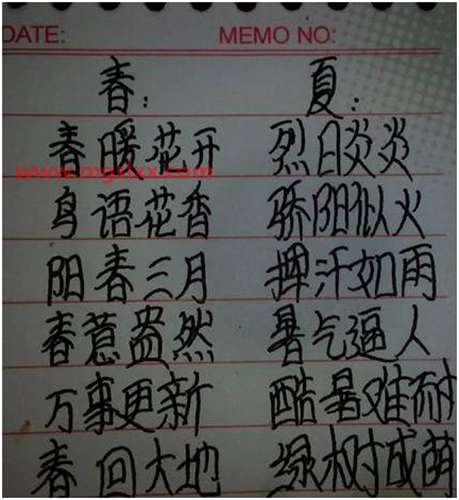 DATE: MEMO NO:
春: 夏:
春暖花开 烈日炎炎
鸟语花香 骄阳似火
阳春三月 挥汗如雨
春意盎然 暑气逼人
万事更新 酷暑难耐
春回大地 绿树成荫